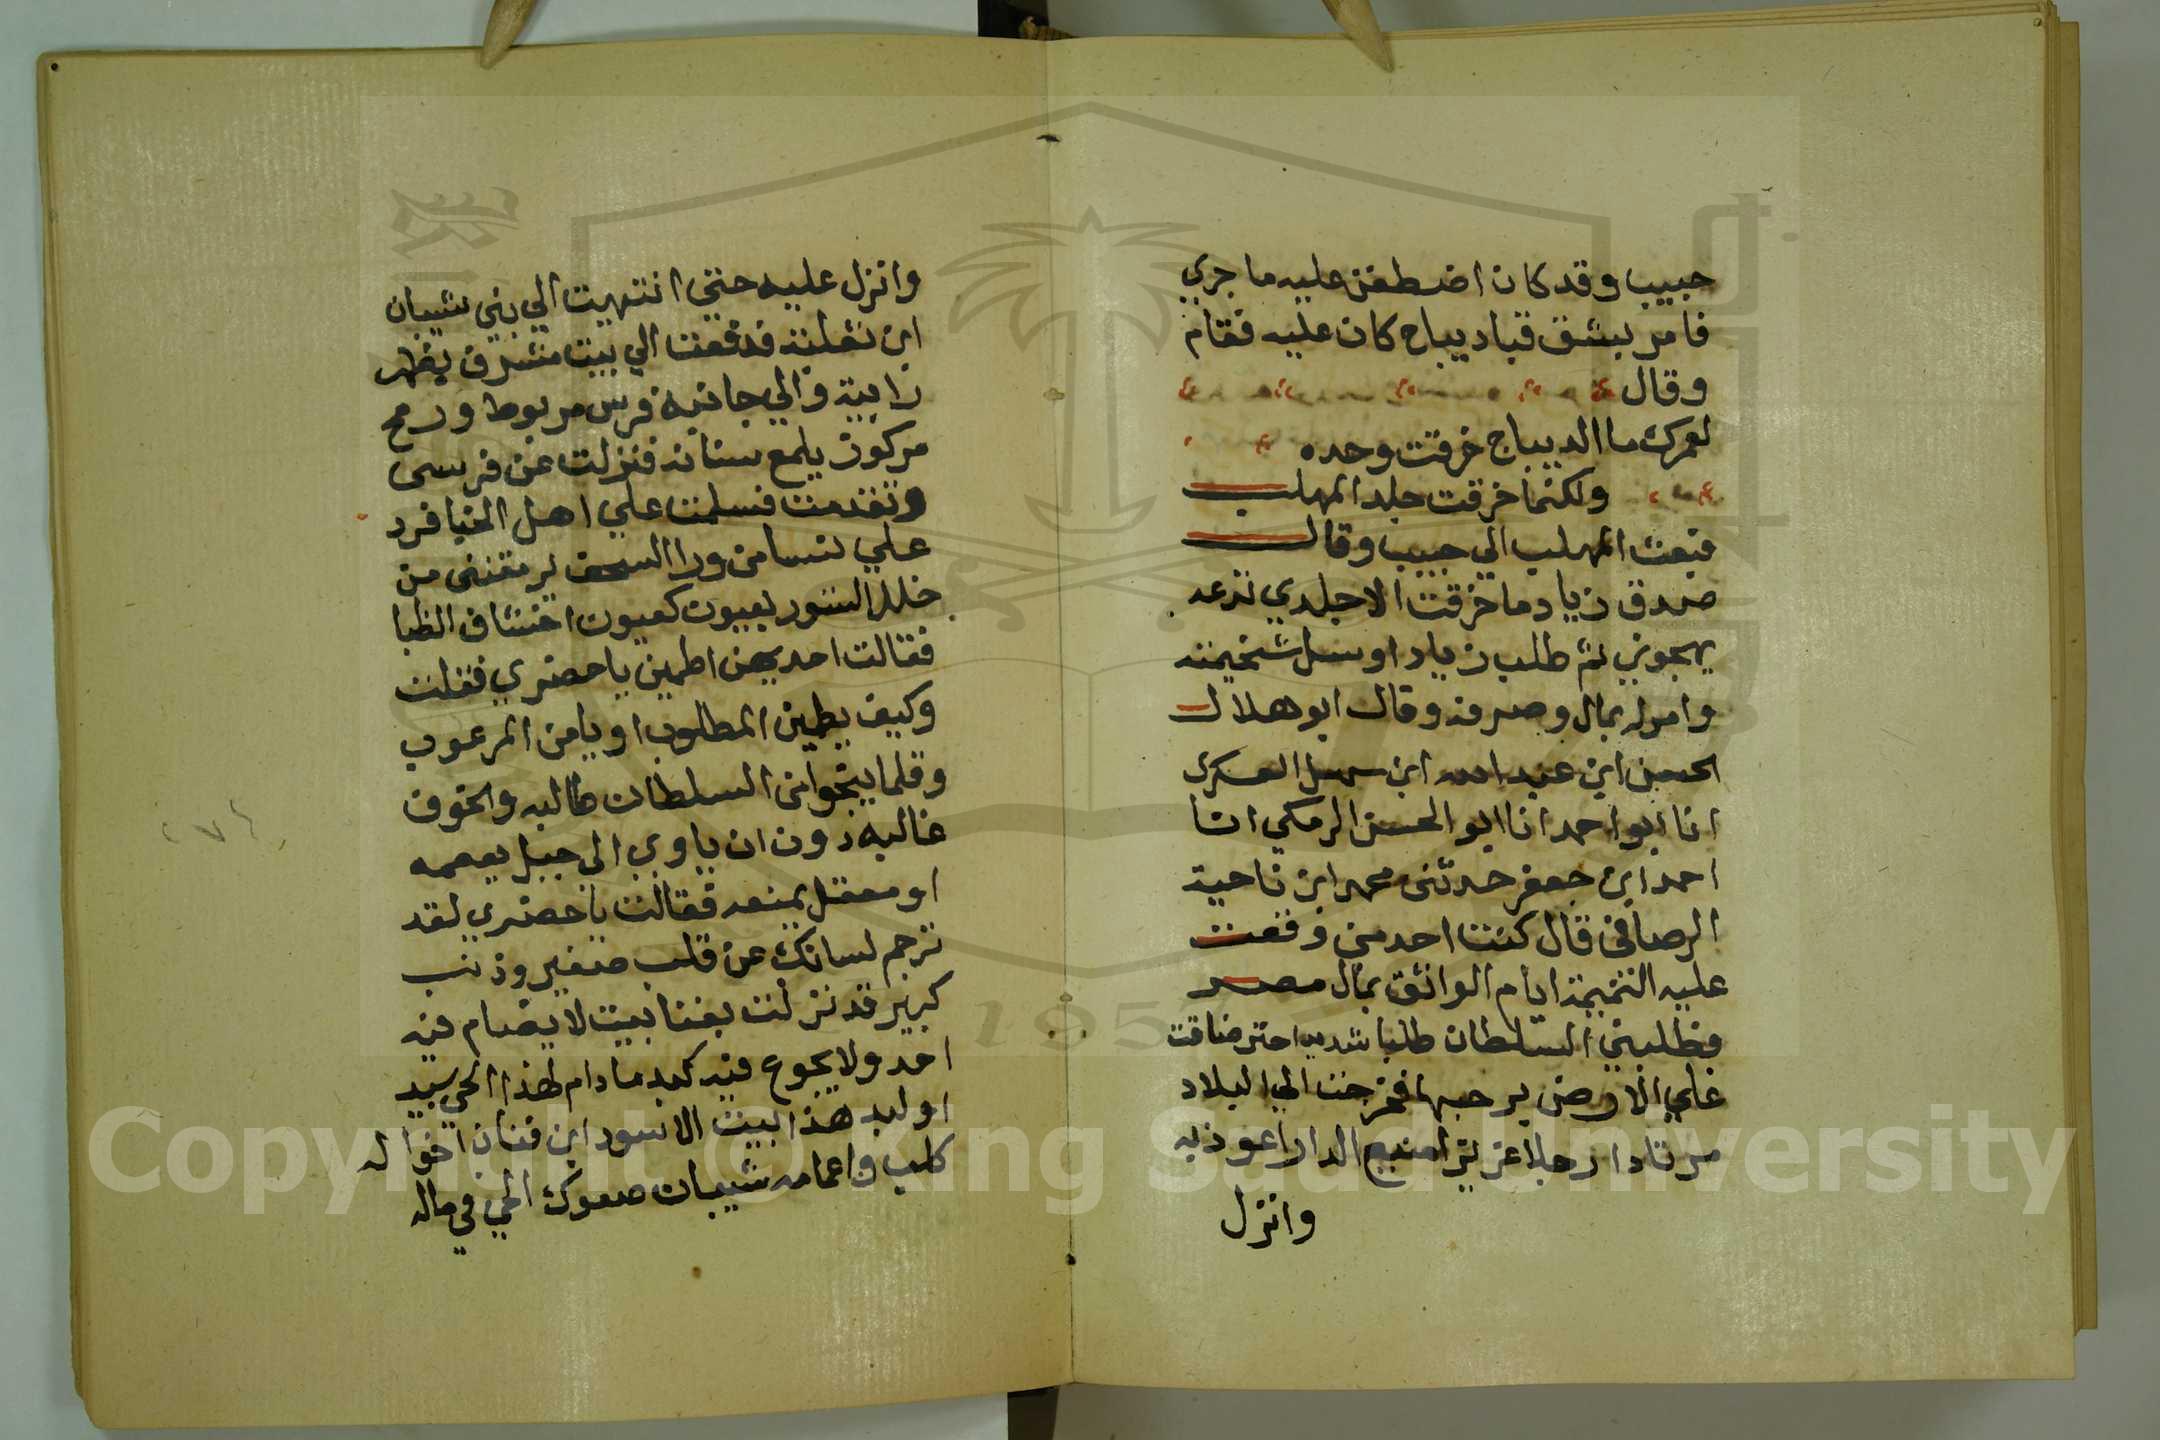 حبيب وقد كان اضطغن عليه ما جري
فامر بشق قبا ديباح كان عليه فقام
وقال
لعمرك ما الديباج خرقت وحده
ولكنما خرقت جلد المهلب
فبعث المهلب الي حبيب وقال
صدق زياد ما خرقت الا جلدي تدعه
يهجوني ثم طلب زياد او سل سخيمته
وامر له بمال وصرفه وقال ابو هلال
الحسين ابن عبد الله ابن سهل العسكرى
انا ابو احمد انا ابو الحسن الرمكي انا
احمد ابن جعفر حدثنى محمد ابن ناحية
الرصافى قال كنت احد من وقعت
عليه التهمة ايام الواثق بمال مصر
فطلبني السلطان طلبا شديدا حتى ضاقت
علي الارض برحبها فخرجت الي البلاد
مرتادا رجلا عزيزا منيع الدار اعوذ به
وانزل
وانزل عليه حتي انتهيت الي بني شيبان
ابن ثعلبة فدفعت الي بيت مشرف بظهر
رابية والي جانبه فرس مربوط ورمح
مركوز يلمع سنانه فنزلت عن فرسى
وتقدمت فسلمت علي اهل الخبا فرد
علي نسا من ورا السجف يرمقننى من
خلل الستور بعيون كعيون اخشاف الظبا
فقالت احديهن اطمين يا حضري فقلت
وكيف يطمين المطلوب او يامن المرعوب
وقلما ينجوا من السلطان طالبه والخوف
غالبه دون ان ياوي الى جبل يعصمه
او معقل يمنعه فقالت يا حضري لقد
ترجم لسانك عن قلب صغير وذنب
كبير قد نزلت بفنا بيت لا يضام فيه
احد ولا يجوع فيه كبد ما دام لهذا الحي سبد
او لبد هذا بيت الاسود ابن قنان اخواله
كلب واعمامه شيبان صعوك الحي في ماله
Copyright © King Saud University
1957